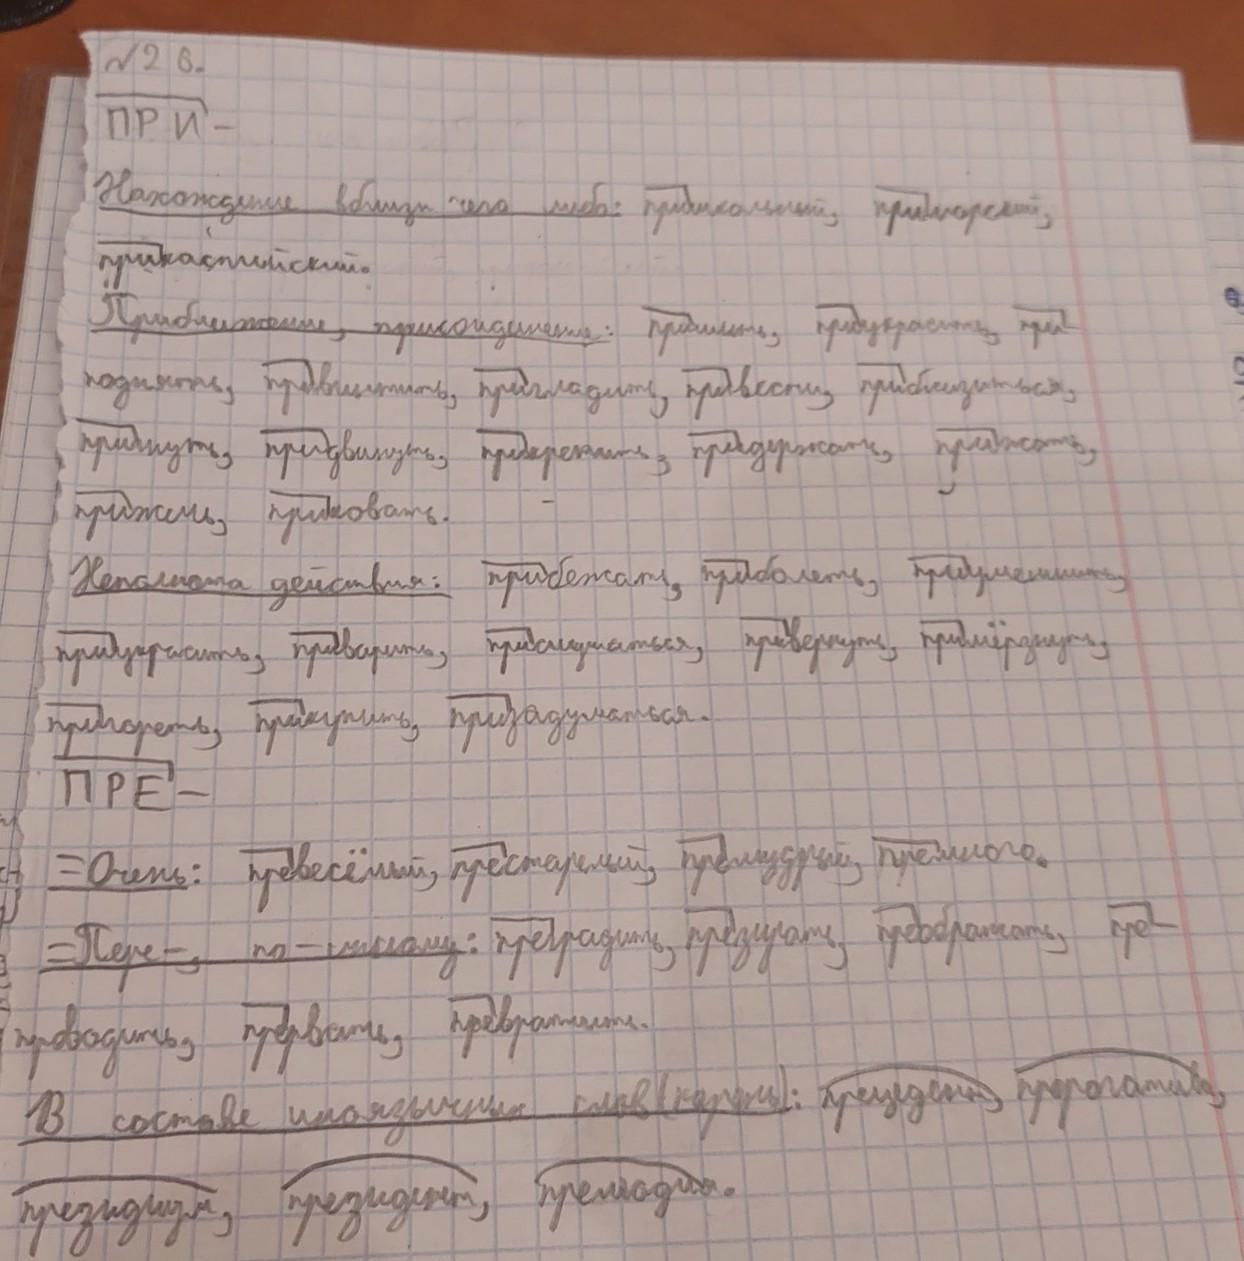 №26.
ПРИ-
Нахождение вблизи чего либо: пришкольный, приморский,
прикаспийский.
Приближение, присоединение: пришить, приукрасить, при
поднять, привинтить, пригладить, привести, приблизиться,
придвинуть, прикрепить, придержать, прижать,
приковать.
Неполнота действия: прибежать, приболеть, приуменьшить,
приукрасить, приварить, прислушаться, привернуть, примёрзнуть,
пригореть, прикупить, призадуматься.
ПРЕ-
=Очень: превесёлый, престарелый, премудрый, премного.
=Пере-, по-иному: преградить, презирать, преображать, пре-
проводить, прервать, превратить.
В составе иноязычных слов (корень): прецедент, прерогатива,
президиум, президент, прелюдия.